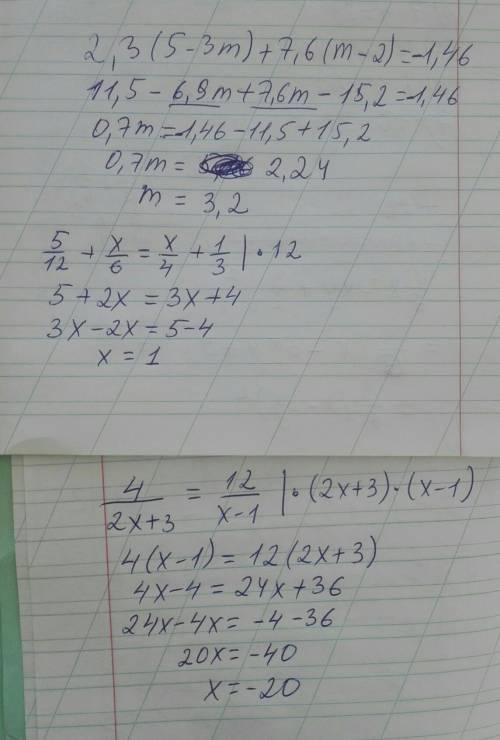 2,3(5-3m)+7,6(m-2)=-1,46
11,5-6,9m+7,6m-15,2=-1,46
0,7m=-1,46-11,5+15,2
0,7m= 2,24
m = 3,2
5/12 + x/6 = x/4 + 1/3 | · 12
5+2x = 3x+4
3x-2x = 5-4
x = 1
4/(2x+3) = 12/(x-1) | · (2x+3) · (x-1)
4(x-1) = 12(2x+3)
4x-4 = 24x+36
24x-4x = -4-36
20x = -40
x = -20